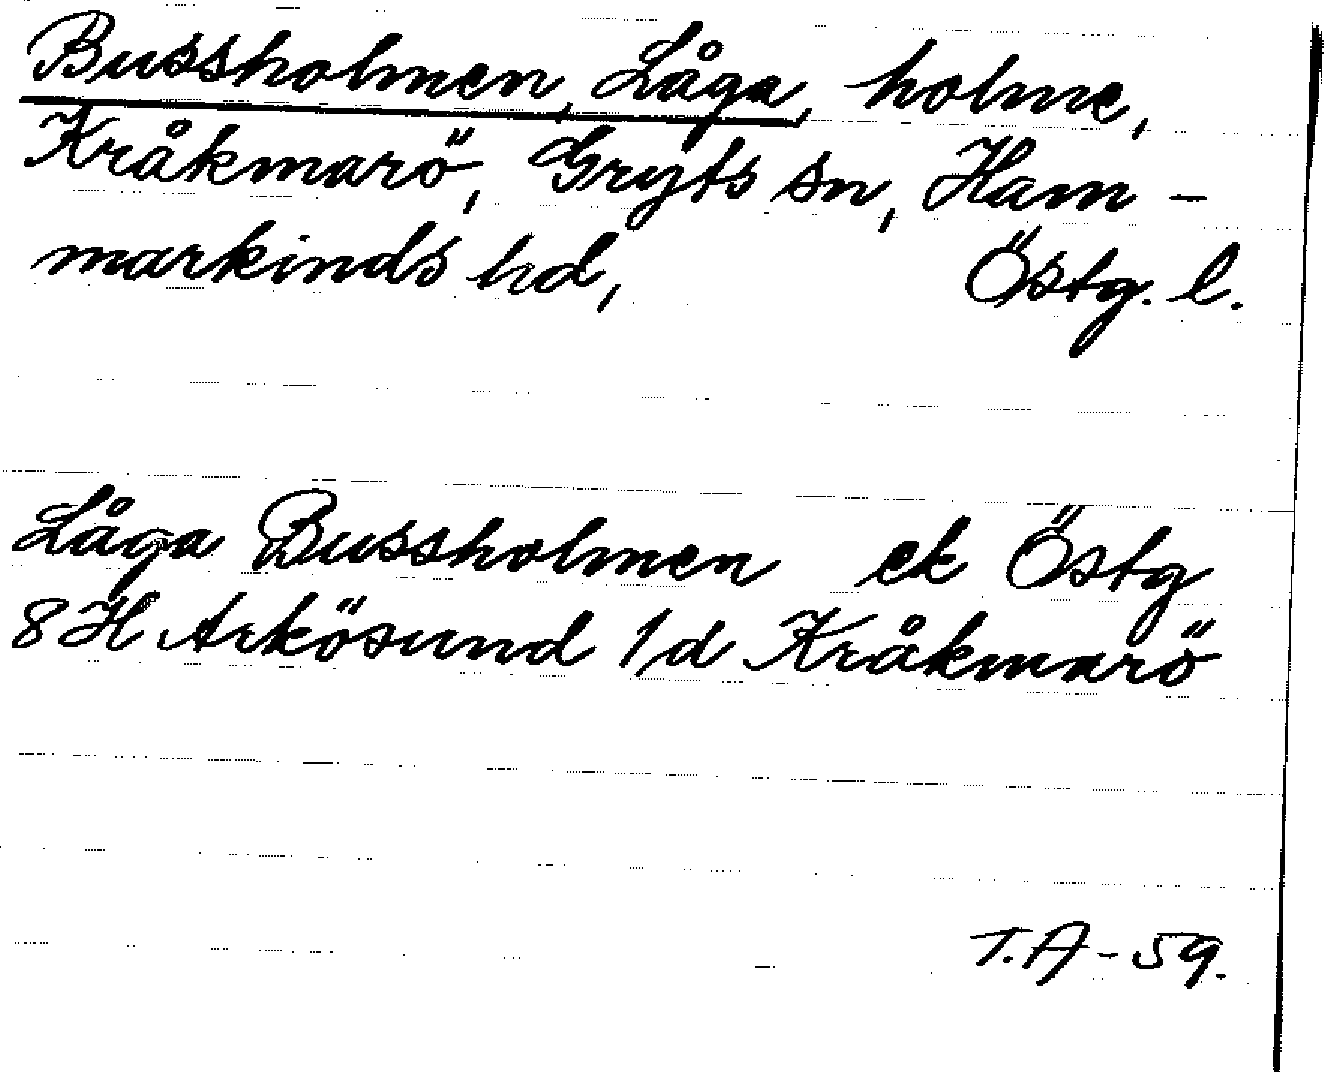 Bussholmen, Låga, holme,
Kråkmarö, Gryts sn, Ham-
markinds hd, Östg. l.
Låga Bussholmen ek Östg
8H Arkösund 1/d Kråkmarö
T.A-59.